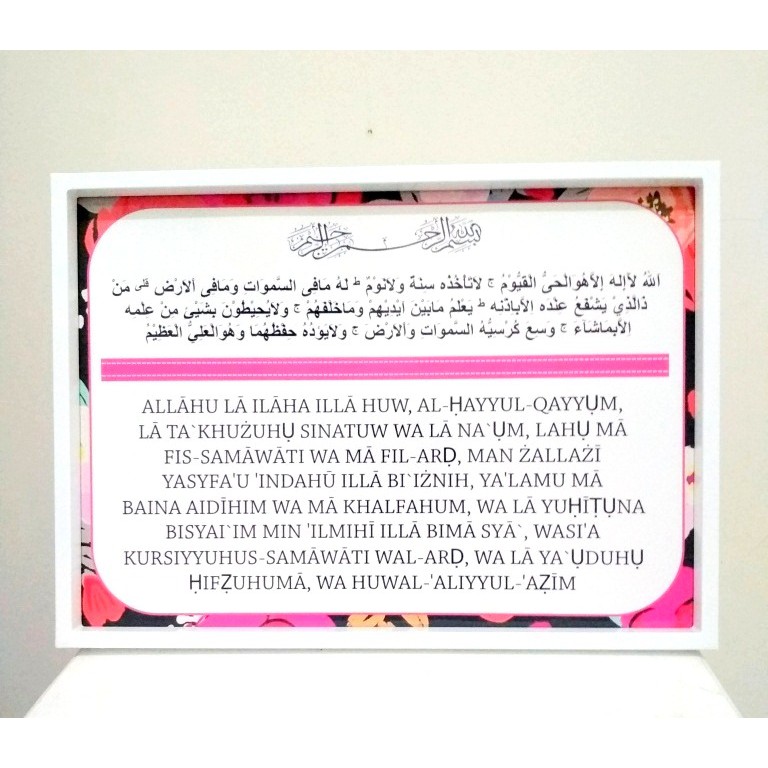 بسم الله الرحمن الرحيم
اَللهُ لآاِلهَ اِلاَّهُوَالْحَىُّ الْقَيُّوْمُ ج لاَتَأْخُذُه سِنَةٌ وَلاَنَوْمٌ ط لَهُ مَافِى السَّموَاتِ وَمَافِى اْلاَرْضِ قلى مَنْ
ذَالَّذِيْ يَشْفَعُ عِنْدَه اِلاَّبِاِذْنِه ط يَعْلَمُ مَابَيْنَ اَيْدِيْهِمْ وَمَاخَلْفَهُمْ ج وَلاَيُحِيْطُوْنَ بِشَيْئٍ مِنْ عِلْمِه
اِلاَّبِمَاشَآءَ ج وَسِعَ كُرْسِيُّهُ السَّموَاتِ وَاْلاَرْضَ ج وَلاَيَؤدُهُ حِفْظُهُمَا وَهُوَالْعَلِيُّ الْعَظِيْمُ
ALLĀHU LĀ ILĀHA ILLĀ HUW, AL-ḤAYYUL-QAYYỤM,
LĀ TA`KHUŻUHỤ SINATUW WA LĀ NA`ỤM, LAHỤ MĀ
FIS-SAMĀWĀTI WA MĀ FIL-ARḌ, MAN ŻALLAŻĪ
YASYFA'U 'INDAHŪ ILLĀ BI`IŻNIH, YA'LAMU MĀ
BAINA AIDĪHIM WA MĀ KHALFAHUM, WA LĀ YUḤĪṬỤNA
BISYAI`IM MIN 'ILMIHĪ ILLĀ BIMĀ SYĀ`, WASI'A
KURSIYYUHUS-SAMĀWĀTI WAL-ARḌ, WA LĀ YA`ỤDUHỤ
ḤIFẒUHUMĀ, WA HUWAL-'ALIYYUL-'AẒĪM